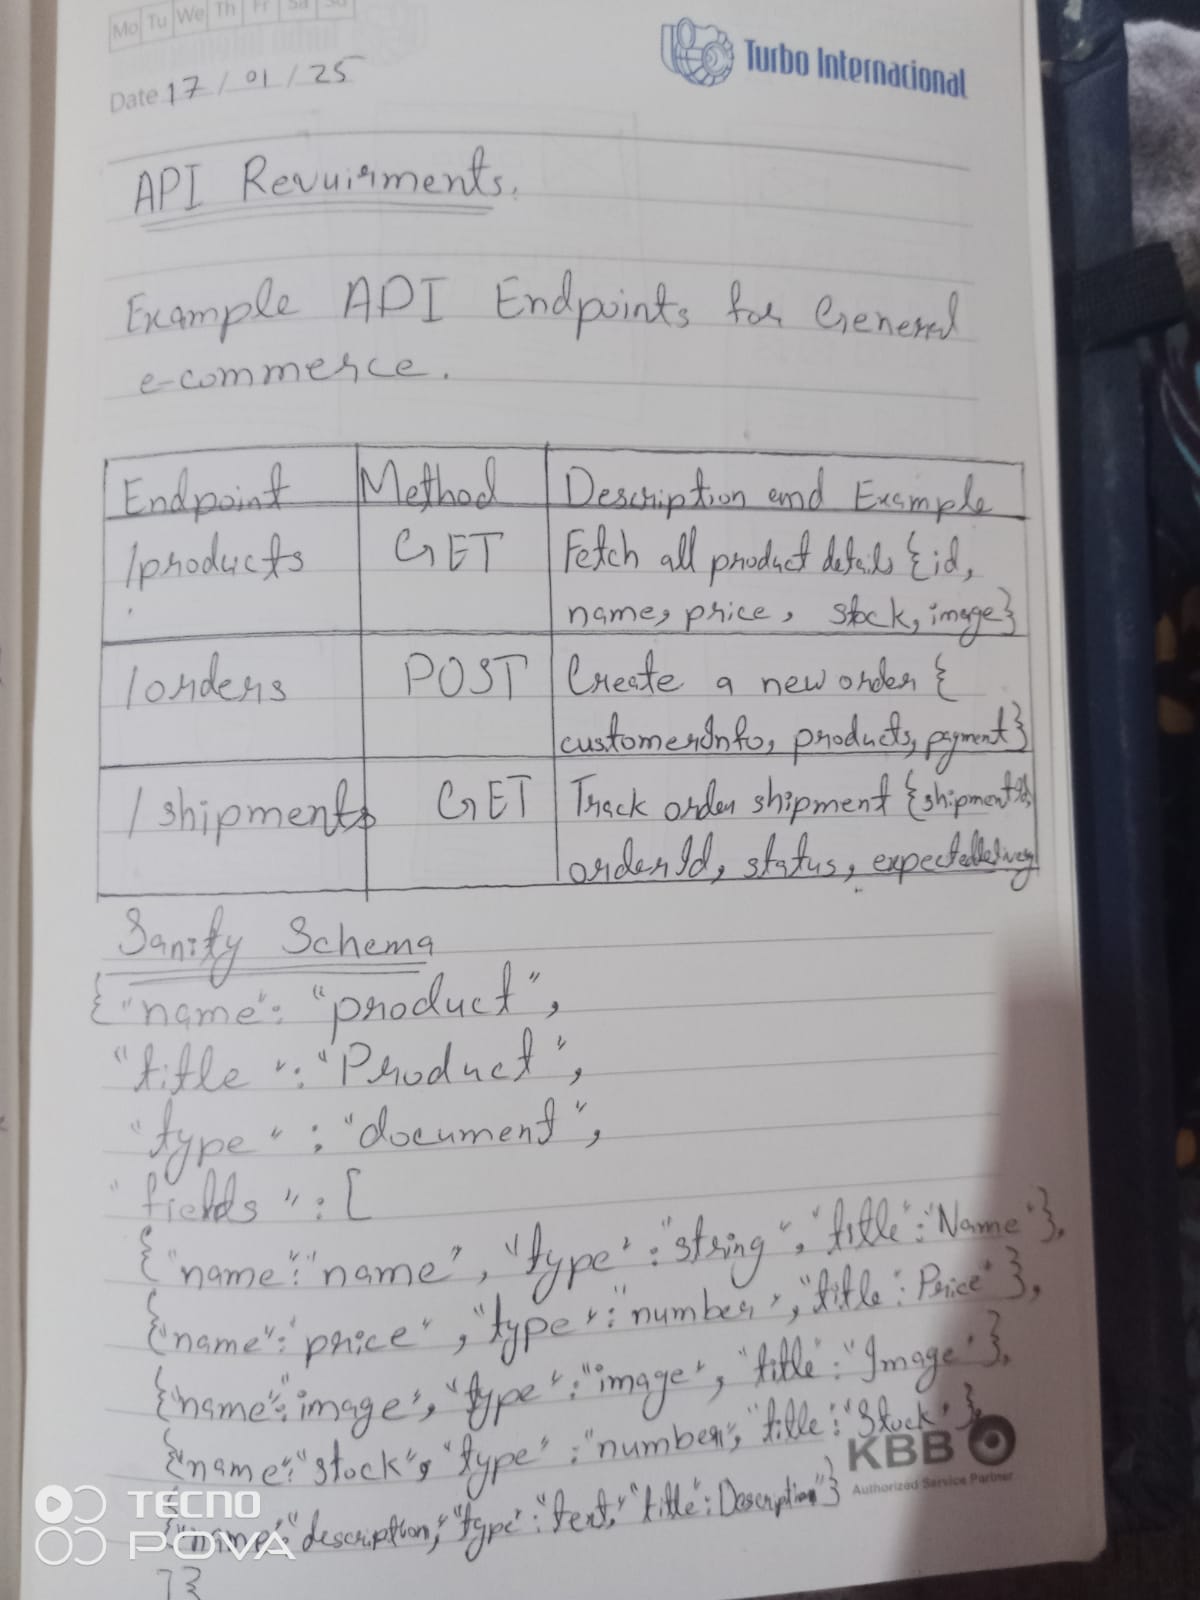 Mo Tu We Th Fr Sa Su
Date 17 / 01 / 25
Turbo Internacional
API Revuirments.
Example API Endpoints for General
e-commerce.
Endpoint Method Description and Example
/products GET Fetch all product details {id,
name, price, stock, image}
/orders POST Create a new order {
customerInfo, products, payment}
/shipments GET Track order shipment {shipmentId,
orderId, status, expectedDelivery
Sanity Schema
{"name": "product",
"title": "Product",
"type": "document",
"fields": [
{"name": "name", "type": "string", "title": "Name"},
{"name": "price", "type": "number", "title": Price"},
{"name": "image", "type": "image", "title": "Image"},
{"name": "stock", "type": "number", "title": "Stock"},
{"name": "description, "type": "text," "title": Description"}
]}
KBB
Authorized Service Partner
TECNO
POVA